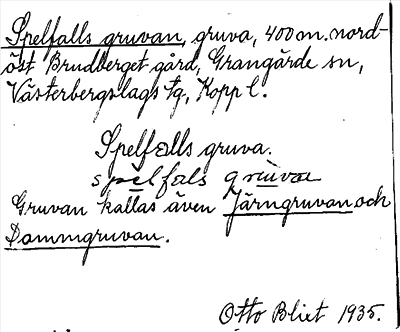 Spelfalls gruvan, gruva, 400 m. nord-
öst Brudberget gård, Grangärde sn,
Västerbergslags tg, Kopp l.
Spelfalls gruva.
spelfals gruvan
Gruvan kallas även Järngruvan och
Dammgruvan.
Otto Blixt 1935.